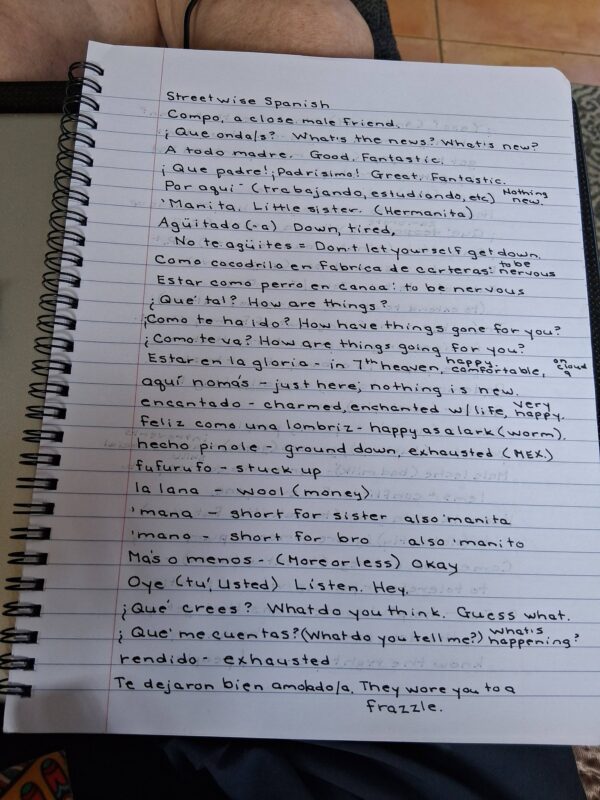 Streetwise Spanish
Compo, a close male friend.
¡Que onda/s? What's the news? What's new?
A todo madre. Good, Fantastic.
¡Que padre! ¡Padrísimo! Great, Fantastic.
Por aquí - (trabajando, estudiando, etc) Nothing new.
'Manita. Little sister. (Hermanita)
Agüitado (-a) Down, tired,
No te agüites = Don't let yourself get down.
Como cocodrilo en fabrica de carteras: to be nervous
Estar como perro en canoa: to be nervous
¿Qué tal? How are things?
¡Como te ha ido? How have things gone for you?
¿Como te va? How are things going for you?
Estar en la gloria - in 7th heaven, happy, comfortable, on cloud 9
aquí nomás - just here; nothing is new.
encantado - charmed, enchanted w/ life, very happy.
feliz como una lombriz - happy as a lark (worm).
hecho pinole - ground down, exhausted (MEX.)
fufurufo - stuck up
la lana - wool (money)
'mana - short for sister also 'manita
'mano - short for bro also 'manito
Más o menos - (More or less) Okay
Oye (tú, Usted) Listen. Hey.
¡Qué crees? What do you think. Guess what.
¡Qué me cuentas? (What do you tell me?) What's happening?
rendido - exhausted
Te dejaron bien amolado/a. They wore you to a
frazzle.